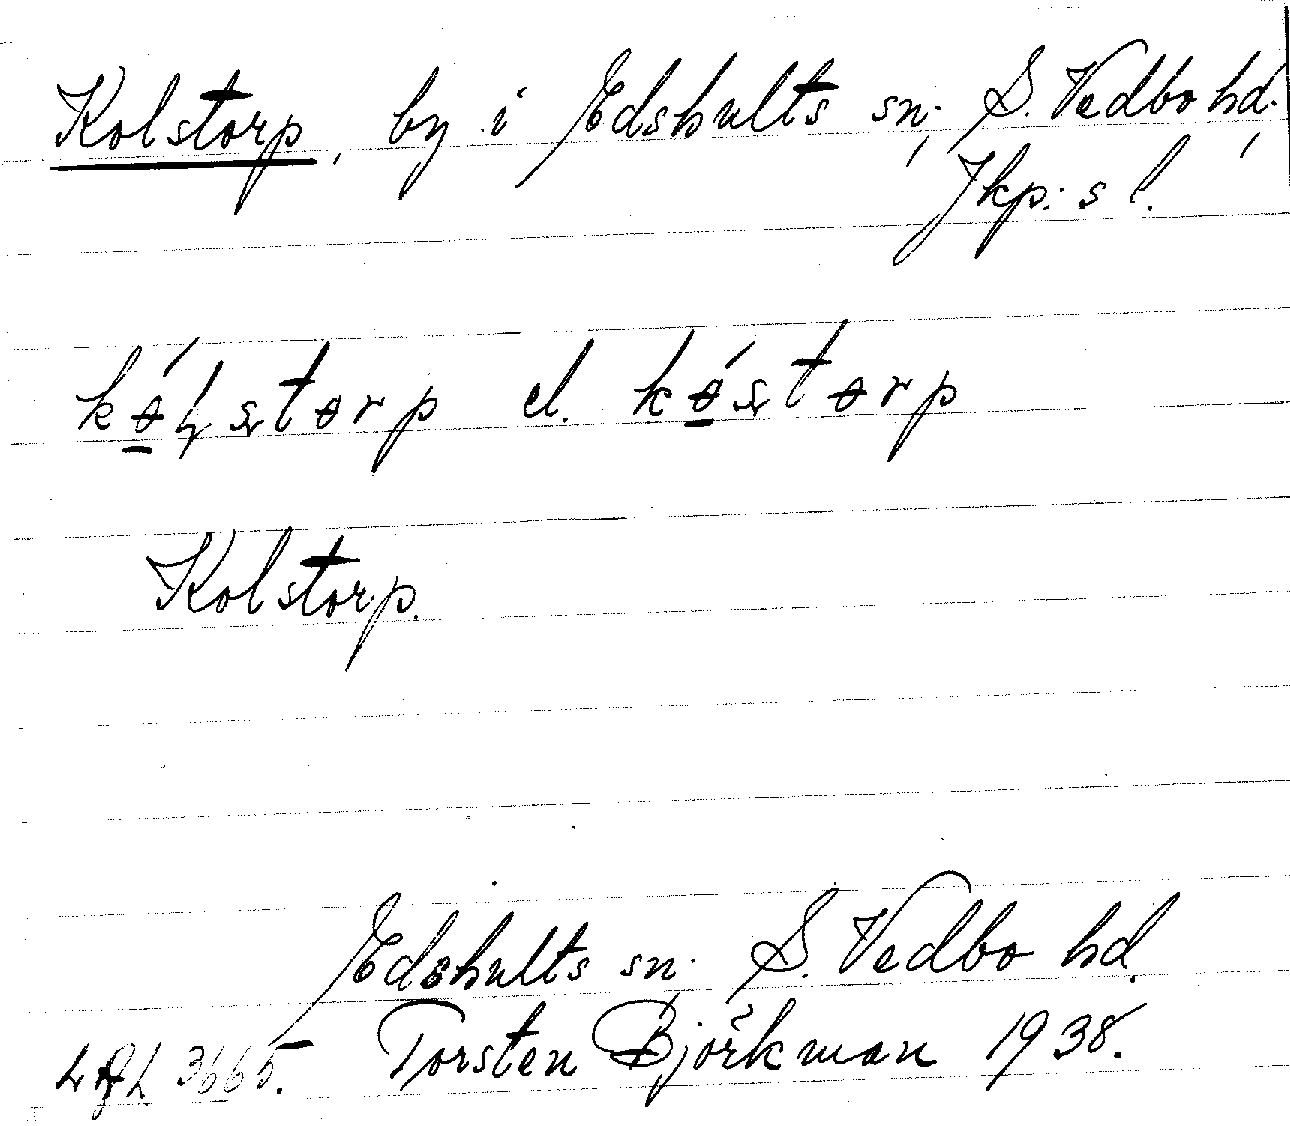 Kolstorp, by i Edshults sn, S. Vedbo hd,
Jkp:s l.
el.
Kolstorp.
Edshults sn. S. Vedbo hd.
Torsten Björkman 1938.
3665.